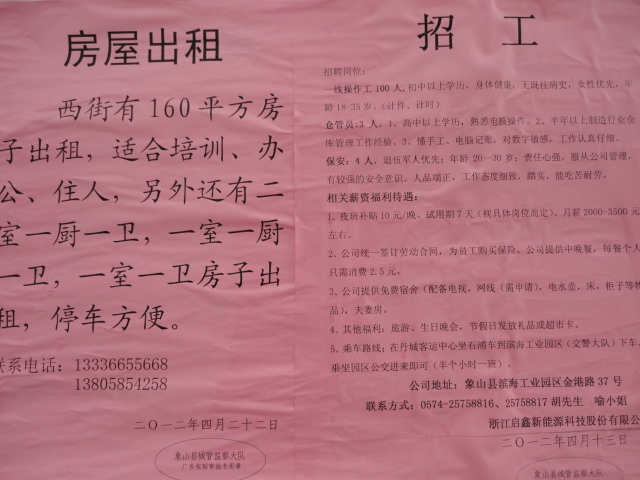 房屋出租
西街有160平方房
子出租，适合培训、办
公、住人，另外还有二
室一厨一卫，一室一厨
一卫，一室一卫房子出
租，停车方便。
联系电话：13336655668
13805854258
二〇一二年四月二十二日
象山县城管监察大队
广告张贴审批专用章
招 工
招聘岗位：
一线操作工100人,初中以上学历，身体健康，无既往病史，女性优先，年
龄18-35岁。（计件、计时）
仓管员：3人，1、高中以上学历，熟悉电脑操作。2、半年以上制造行业仓
库管理工作经验。3、懂手工、电脑记账，对数字敏感，工作认真仔细。
保安：4人，退伍军人优先；年龄20—30岁；责任心强，服从公司管理，
有较强的安全意识。人品端正，工作态度细致，踏实，能吃苦耐劳。
相关薪资福利待遇：
1、夜班补贴10元/晚。试用期7天（视具体岗位而定）。月薪2000-3500元
左右。
2、公司统一签订劳动合同，为员工购买保险。公司提供中晚餐，每餐个人
只需消费2.5元。
3、公司提供免费宿舍（配备电视，网线（需申请），电水壶，床，柜子等物
品）、夫妻房。
4、其他福利：旅游、生日晚会，节假日发放礼品或超市卡。
5、乘车路线：在丹城客运中心坐石浦车到滨海工业园区（交警大队）下车，
乘坐园区公交进来即可（半个小时一班）。
公司地址：象山县滨海工业园区金港路37号
联系方式：0574-25758816、25758817胡先生 喻小姐
浙江启鑫新能源科技股份有限公
二〇一二年四月十三日
象山县城管监察大队